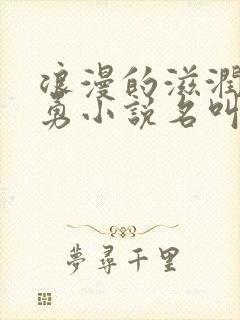 浪漫的滋润
勇小说名叫
夢尋千里